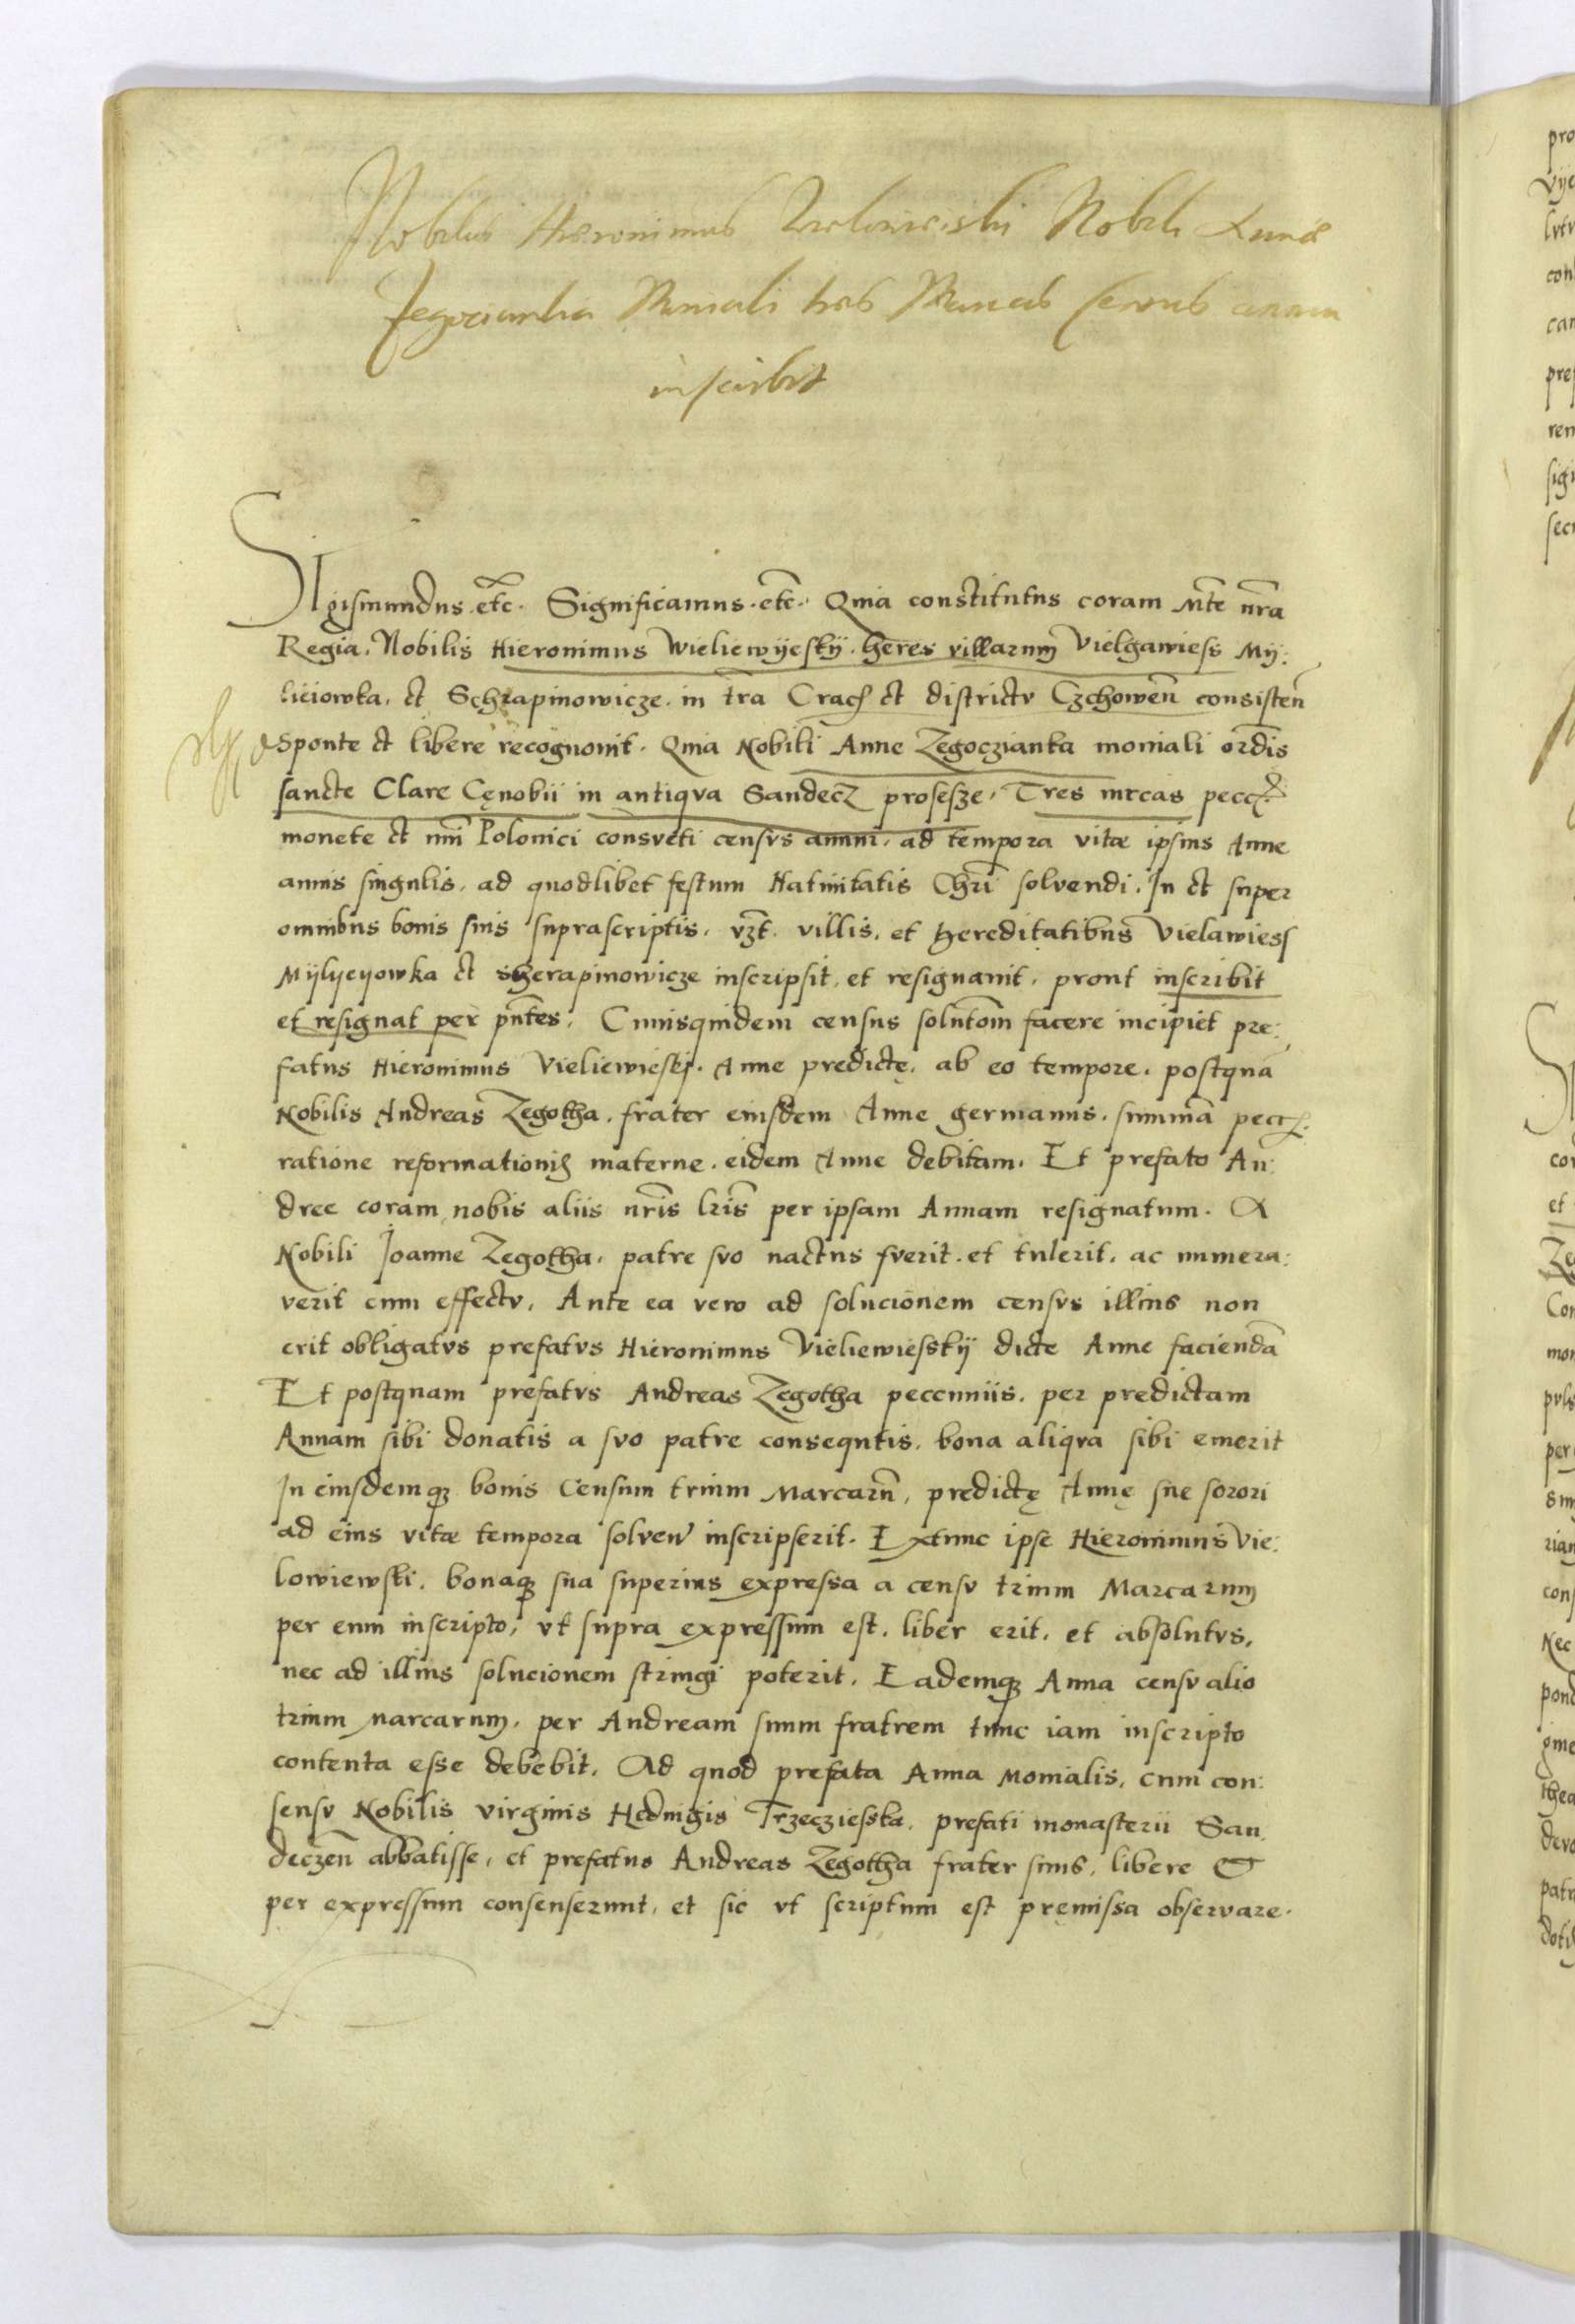 Nobilis Hieronimus Wielowieiski Nobili Annae
Zegocianka Moniali tres Marcas census annui
inscribit
Sigismundus etc. Significamus. etc. Quia constitutus coram Mte nra
Regia. Nobilis Hieronimus Wieliewÿeskÿ. heres villarum Vielgawiess Mÿ:
liciowka. et Schrapinowicze. in tra Crac et districtv Czchowen consisten
sponte et libere recognouit. Quia Nobili Anne Zegoczianka moniali ordis
sancte Clare Cęnobii in antiqva Sandecz professze, Tres mrcas pecc.
monete et nui Polonici consveti censvs annui, ad tempora vitæ ipsius Anne
annis singulis, ad quodlibet festum Natiuitatis Chri solvendi. In et super
omnibus bonis suis suprascriptis. vzt. villis, et hereditatibus Vielawiess
Mÿlycyowka et sherapinowicze inscripsit, et resignauit, prout inscribit
et resignat per pntes. Cuiusquidem census solutom facere incipiet pre:
fatus Hieronimus Vieliewieskj. Anne predictę, ab eo tempore. postqua
Nobilis Andreas Zegotha. frater eiusdem Anne germanus. summa pecc.
ratione reformationis materne. eidem Anne debitam. Et prefato An:
dree coram nobis aliis nris lris per ipsam Annam resignatum. A
Nobili Joanne Zegotha, patre svo nactus fverit. et tulerit. ac numera:
verit cum effectv, Ante ea vero ad solucionem censvs illius non
erit obligatvs prefatvs Hieronimus Vieliewiesskÿ dicte Anne facienda
Et postquam prefatvs Andreas Zegotha peccuniis. per predictam
Annam sibi donatis a svo patre consequtis. bona aliqva sibi emerit
In eiusdemq bonis Censum trium Marcaru, predictę Annę sue sorori
ad eius vitæ tempora solven inscripserit. Extunc ipse Hieronimus Vie:
lowiewski. bonaq sua superius expressa a censv trium Marcarum
per eum inscripto, vt supra expressum est. liber erit. et absolutvs,
nec ad illius solucionem stringi poterit. Eademq Anna censv alio
trium marcarum. per Andream suum fratrem tunc iam inscripto
contenta esse debebit. Ad quod prefata Anna Monialis, cum con:
sensv Nobilis virginis Hedvigis Trzecziesska. prefati monasterii San
deczen abbatisse, et prefatus Andreas Zegotha frater suus, libere et
per expressum consenserunt, et sic vt scriptum est pręmissa observare.